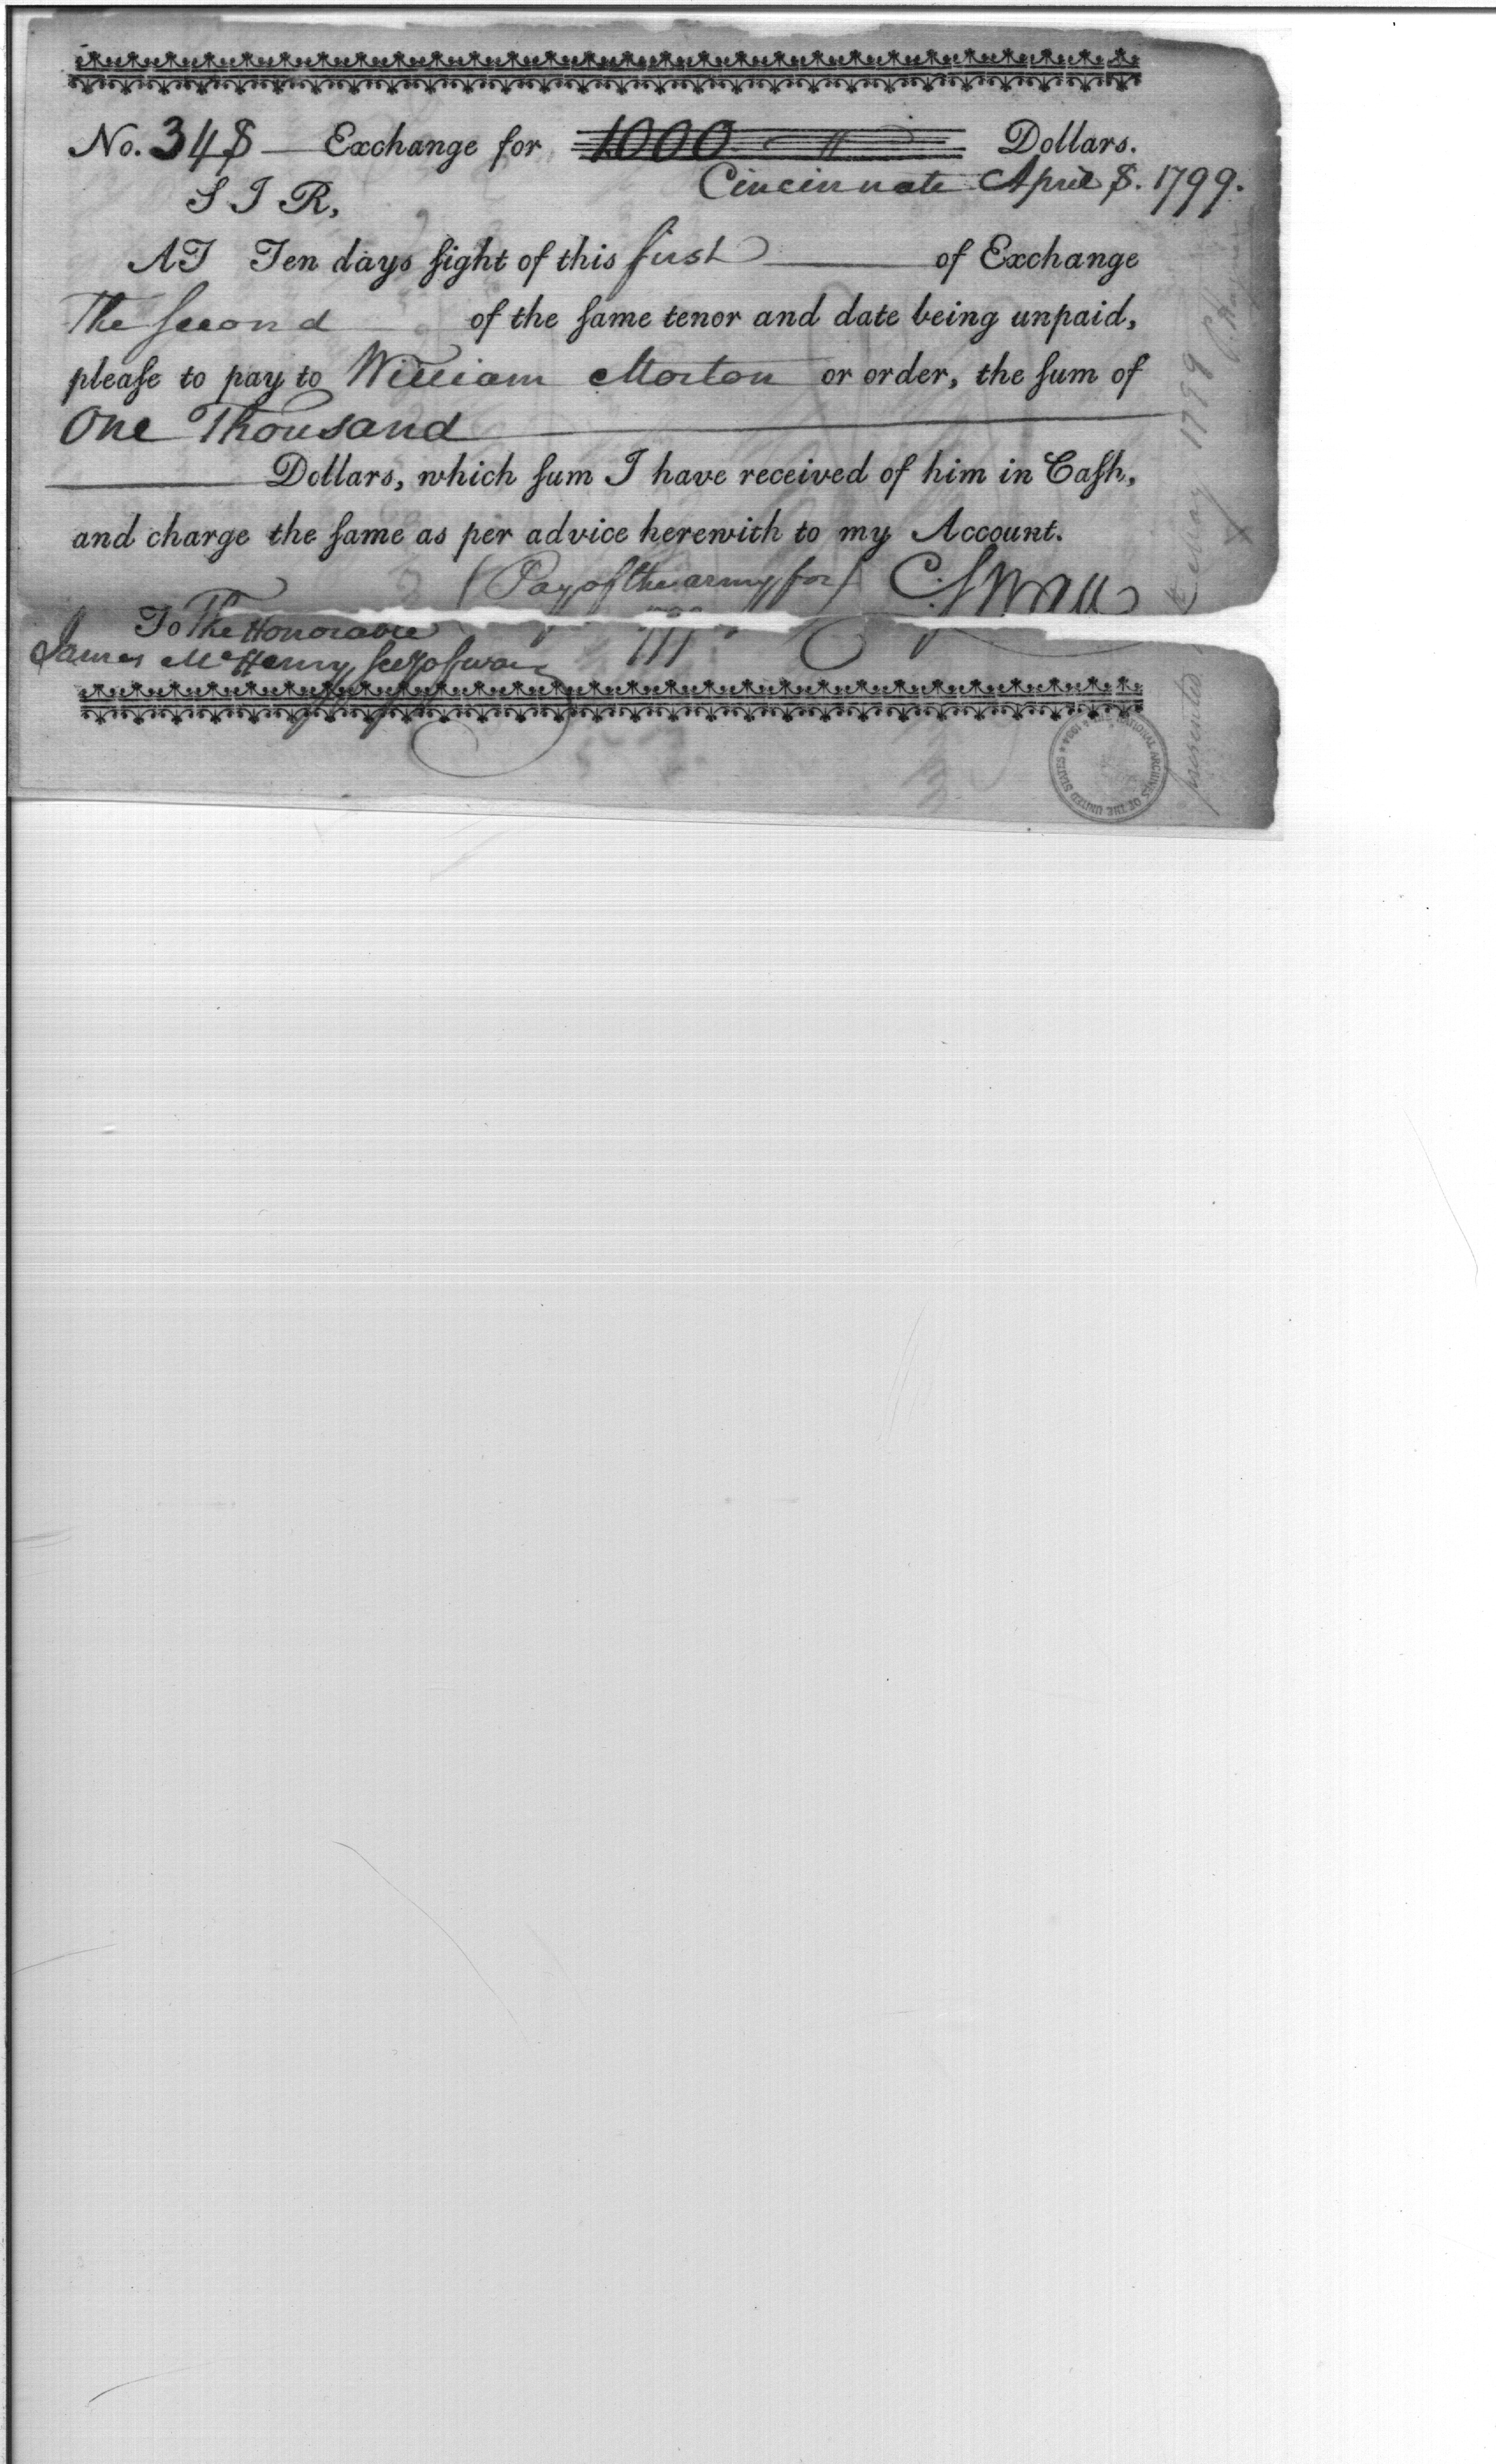 No. 348 Exchange for 1000 Dollars.
Cincinnati April 8. 1799.
SIR,
AT Ten days ſight of this first of Exchange
The Second of the ſame tenor and date being unpaid,
pleaſe to pay to William Morton or order, the ſum of
One Thousand
Dollars, which ſum I have received of him in Caſh,
and charge the ſame as per advice herewith to my Account.
(Pay of the army for C. Swan
To The Honorable
James McHenry Secy of war
presented
May 1799
NATIONAL ARCHIVES OF THE UNITED STATES